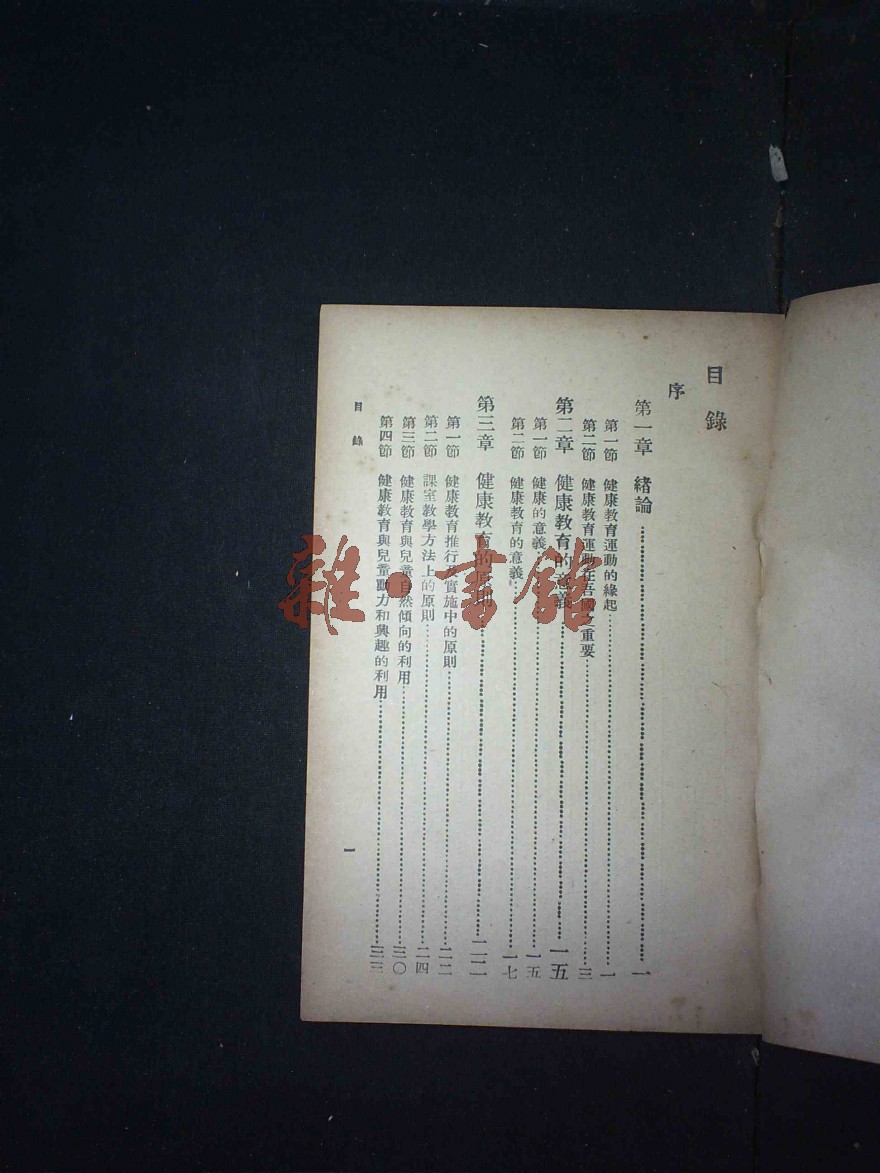 目錄
序
第一章 緒論……一
第一節 健康教育運動的緣起……一
第二節 健康教育運動在吾國之重要……三
第二章 健康教育的意義……一五
第一節 健康的意義……一五
第二節 健康教育的意義……一七
第三章 健康教育的原則……二二
第一節 健康教育推行及實施中的原則……二二
第二節 課室教學方法上的原則……二四
第三節 健康教育與兒童自然傾向的利用……三〇
第四節 健康教育與兒童動力和興趣的利用……三三
目錄
一
雜·書館